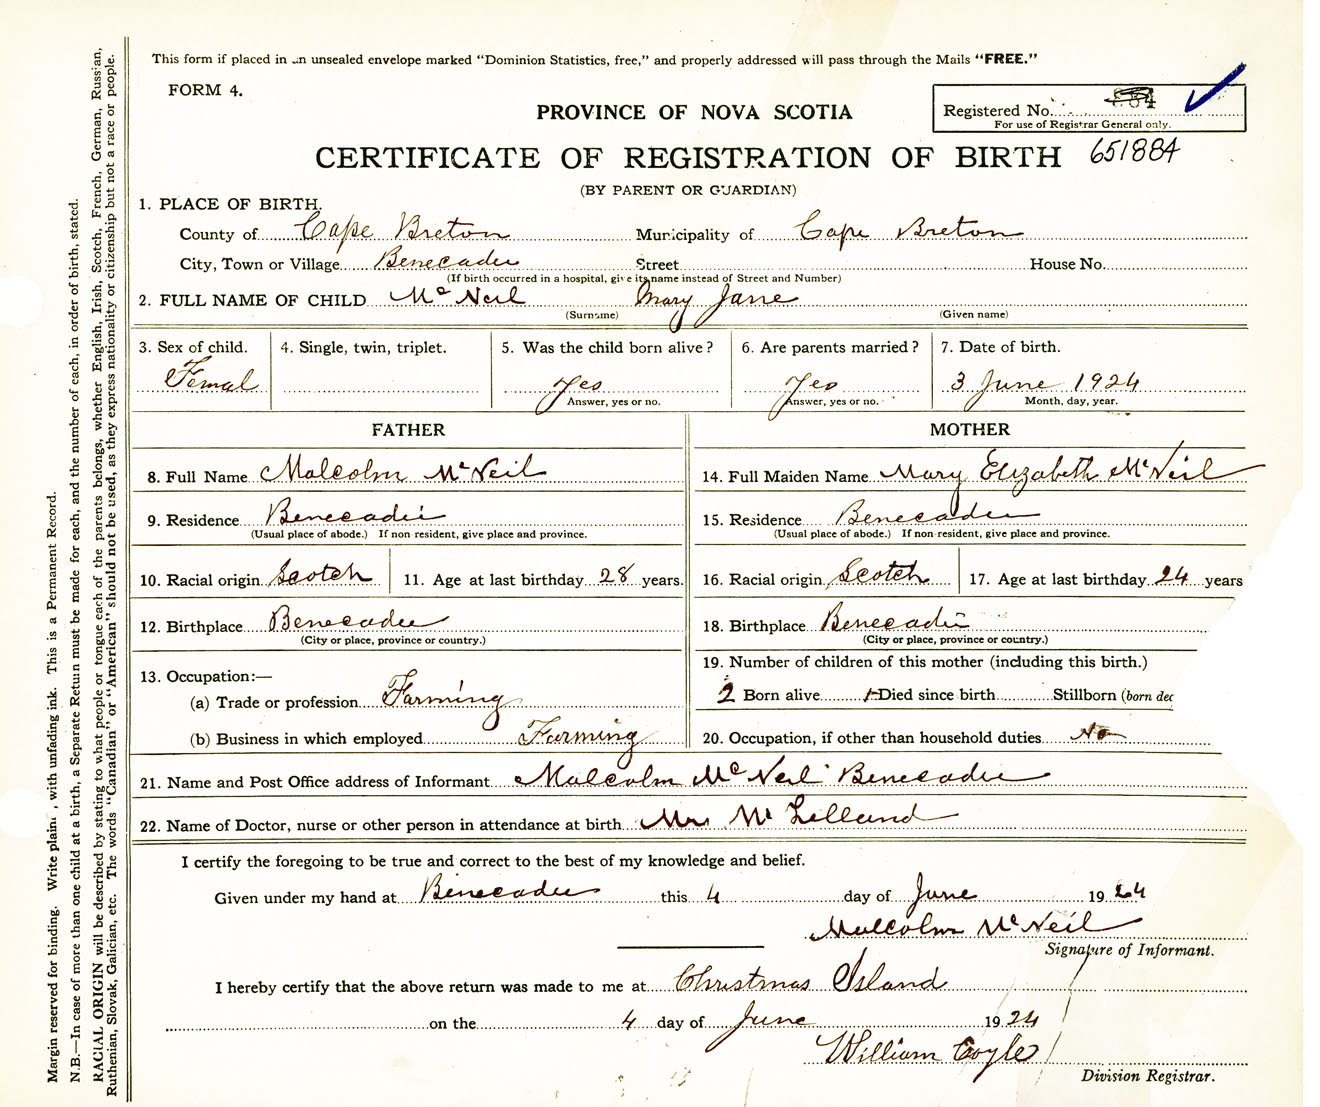 This form if placed in an unsealed envelope marked "Dominion Statistics, free," and properly addressed will pass through the Mails "FREE."
FORM 4.
PROVINCE OF NOVA SCOTIA
Registered No.
For use of Registrar General only.
CERTIFICATE OF REGISTRATION OF BIRTH 651884
(BY PARENT OR GUARDIAN)
1. PLACE OF BIRTH.
County of Cape Breton Municipality of Cape Breton
City, Town or Village Benecadie Street House No.
(If birth occurred in a hospital, give its name instead of Street and Number)
2. FULL NAME OF CHILD McNeil Mary Jane
(Surname) (Given name)
3. Sex of child. 4. Single, twin, triplet. 5. Was the child born alive? 6. Are parents married? 7. Date of birth.
Femal Yes Yes 3 June 1924
Answer, yes or no. Answer, yes or no. Month, day, year.
FATHER MOTHER
8. Full Name Malcolm McNeil 14. Full Maiden Name Mary Elizabeth McNeil
9. Residence Benecadie 15. Residence Benecadie
(Usual place of abode.) If non resident, give place and province. (Usual place of abode.) If non-resident, give place and province.
10. Racial origin Scotch 11. Age at last birthday 28 years. 16. Racial origin Scotch 17. Age at last birthday 24 years
12. Birthplace Benecadie 18. Birthplace Benecadie
(City or place, province or country.) (City or place, province or country.)
13. Occupation:— 19. Number of children of this mother (including this birth.)
(a) Trade or profession Farming 2 Born alive 1 Died since birth Stillborn (born dec
(b) Business in which employed Farming 20. Occupation, if other than household duties No
21. Name and Post Office address of Informant Malcolm McNeil Benecadie
22. Name of Doctor, nurse or other person in attendance at birth Mrs McLelland
I certify the foregoing to be true and correct to the best of my knowledge and belief.
Given under my hand at Benecadie this 4 day of June 1924
Malcolm McNeil
Signature of Informant.
I hereby certify that the above return was made to me at Christmas Island
on the 4 day of June 1924
William Coyle
Division Registrar.
Margin reserved for binding. Write plain, with unfading ink. This is a Permanent Record.
N.B.—In case of more than one child at a birth, a Separate Return must be made for each, and the number of each, in order of birth, stated.
RACIAL ORIGIN will be described by stating to what people or tongue each of the parents belongs, whether English, Irish, Scotch, French, German, Russian,
Ruthenian, Slovak, Galician, etc. The words "Canadian" or "American" should not be used, as they express nationality or citizenship but not a race or people.